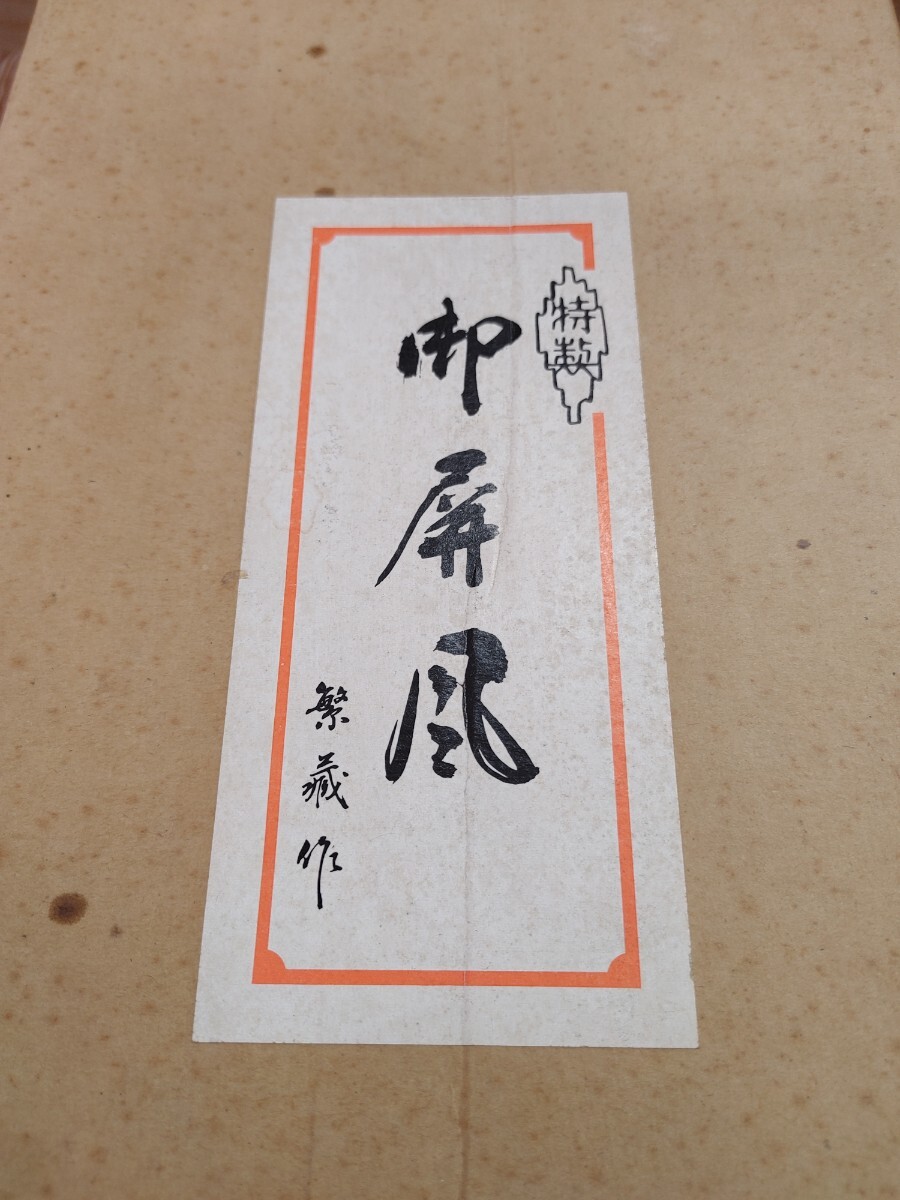 特製
御屏風
繁藏作